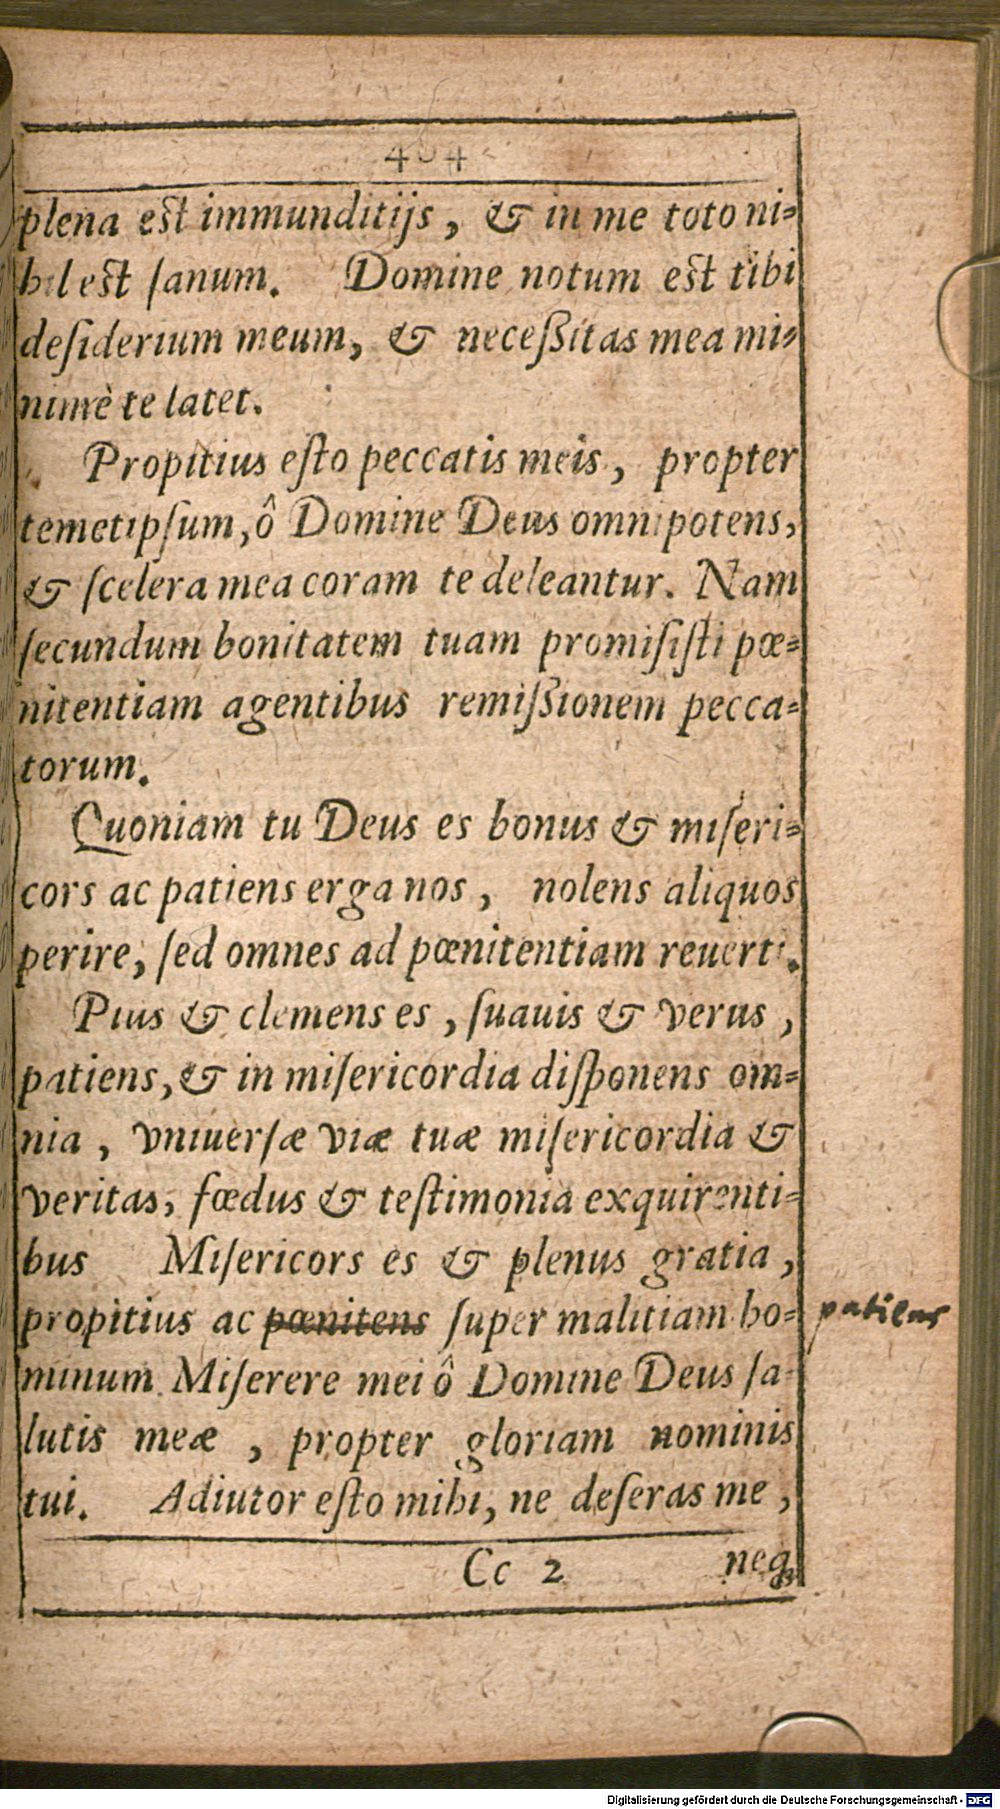 404
plena est immunditijs, & in me toto ni-
hil est ſanum. Domine notum est tibi
deſiderium meum, & neceßitas mea mi-
nimè te latet.
Propitius eſto peccatis meis, propter
temetipſum, ô Domine Deus omnipotens,
& ſcelera mea coram te deleantur. Nam
ſecundum bonitatem tuam promiſiſti pœ-
nitentiam agentibus remißionem pecca-
torum.
Quoniam tu Deus es bonus & miſeri-
cors ac patiens erga nos, nolens aliquos
perire, ſed omnes ad pœnitentiam reuerti.
Pius & clemens es, ſuauis & verus,
patiens, & in miſericordia diſponens om-
nia, vniuerſæ viæ tuæ miſericordia &
veritas, fœdus & teſtimonia exquirenti-
bus Miſericors es & plenus gratia,
propitius ac pœnitens ſuper malitiam ho-
patiens
minum. Miſerere mei ô Domine Deus ſa-
lutis meæ, propter gloriam nominis
tui. Adiutor eſto mihi, ne deſeras me,
Cc 2 neq;
Digitalisierung gefördert durch die Deutsche Forschungsgemeinschaft - DFG